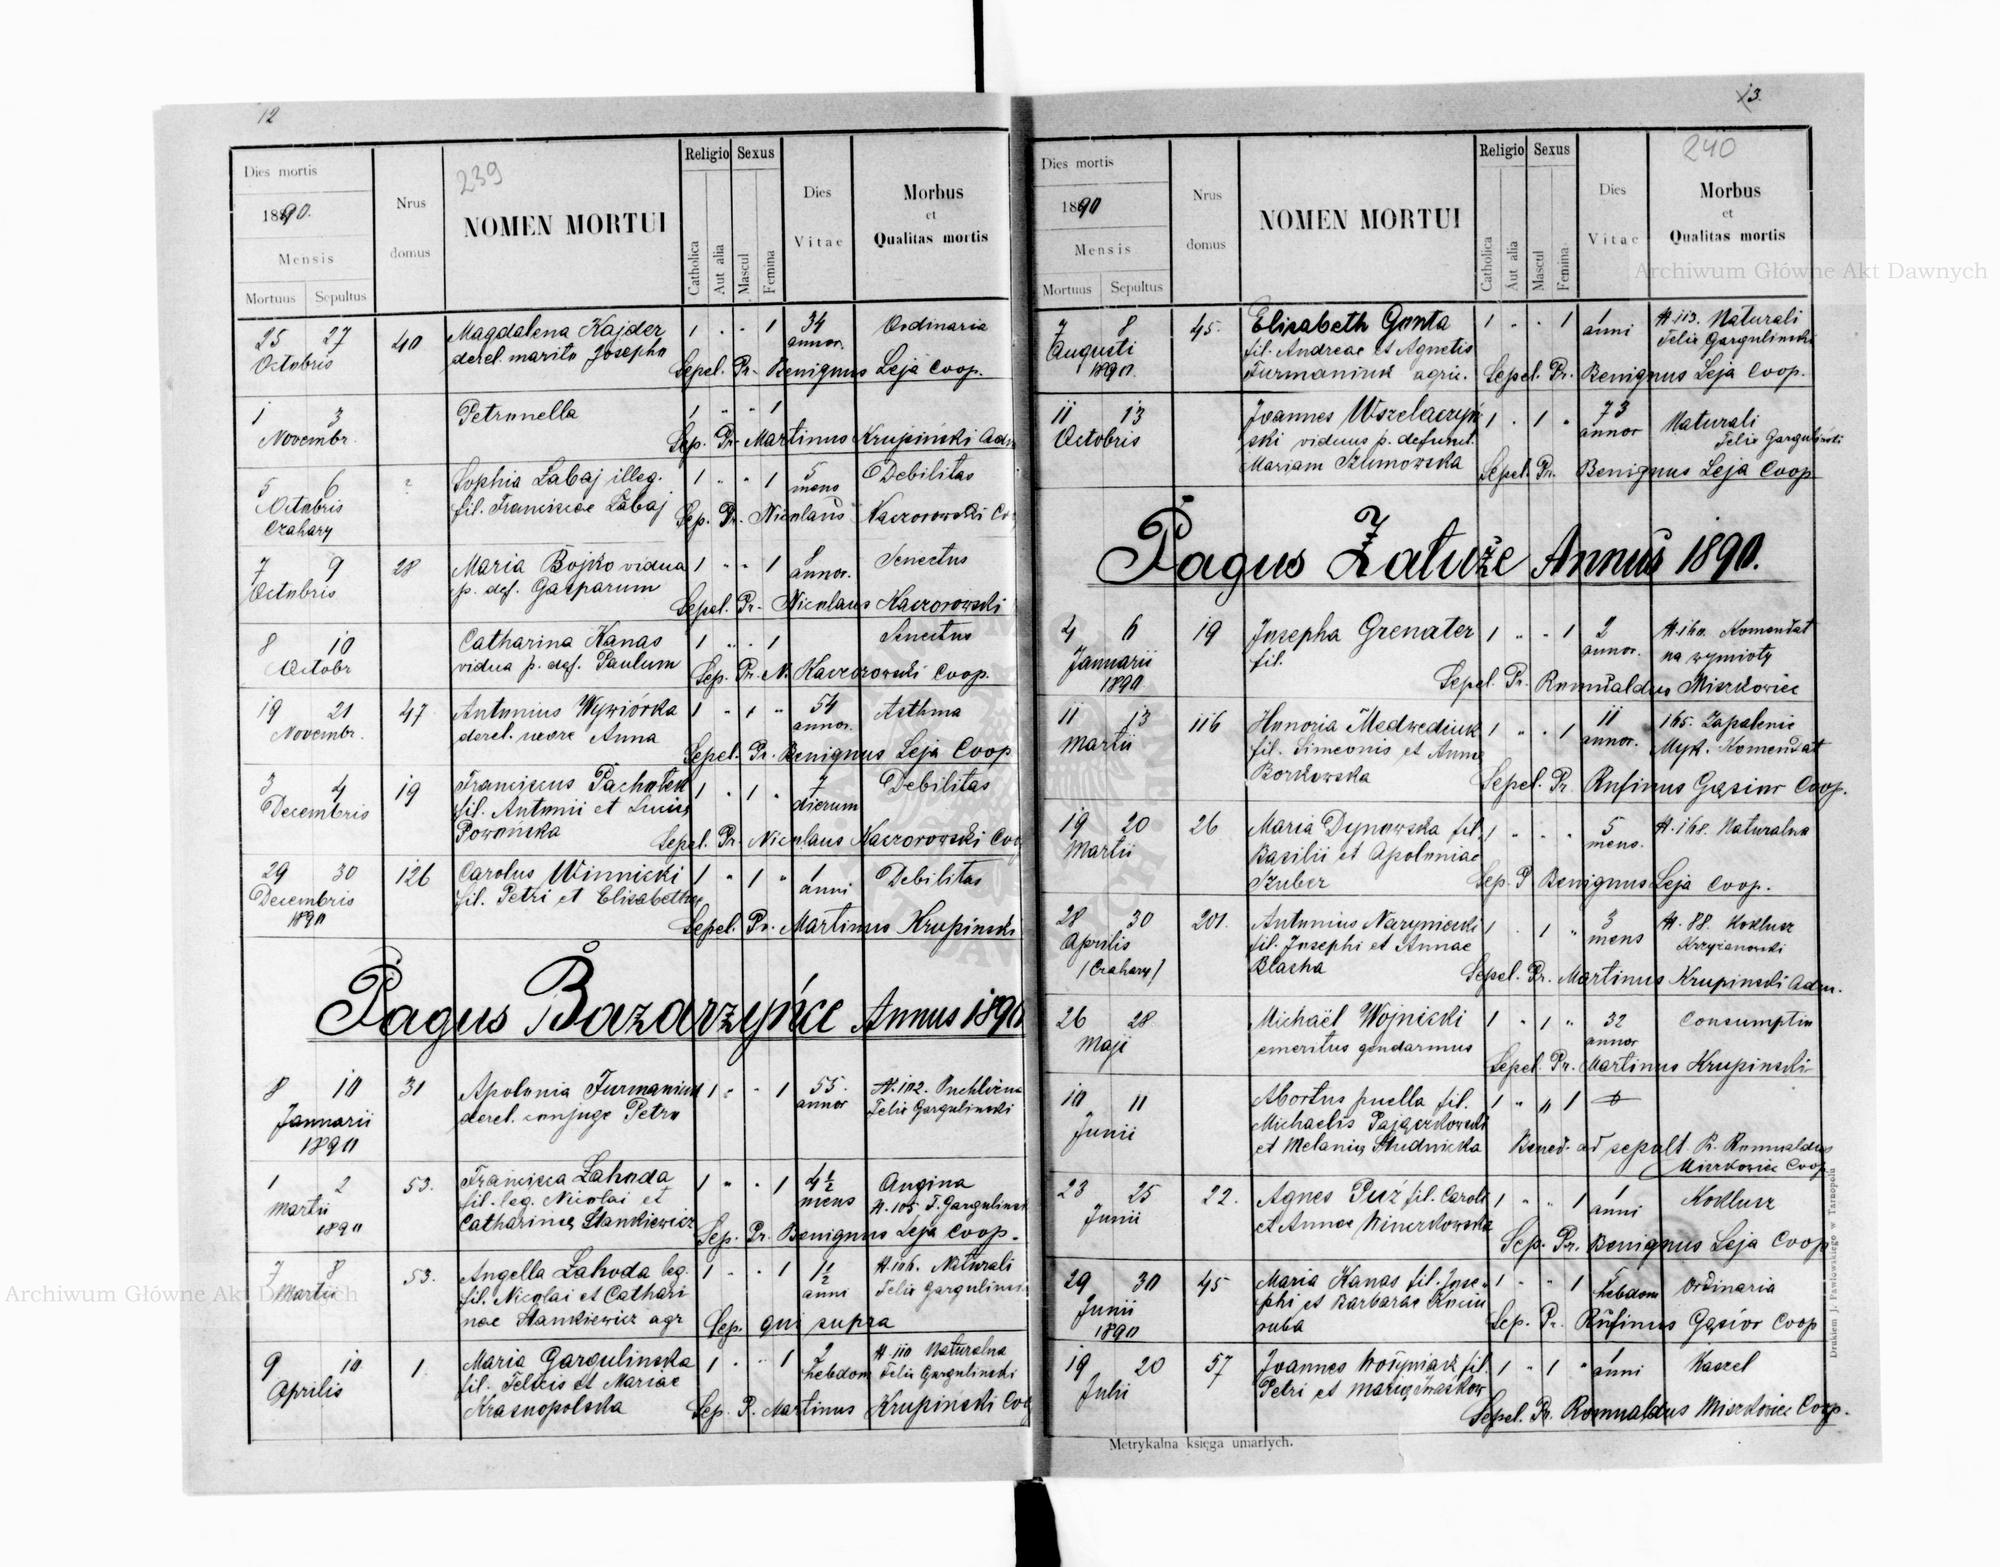 12
239
Dies mortis
1890.
Mensis
Mortuus Sepultus
Nrus
domus
NOMEN MORTUI
Religio
Catholica
Aut alia
Sexus
Mascul
Femina
Dies
Vitae
Morbus
et
Qualitas mortis
25 27 40 Magdalena Kajder 1 " " 1 34 Ordinaria
Octobris derel. marito Josepho annor.
Sepel. Pr. Benignus Leja Coop.
1 3 Petronella 1 " " 1
Novembr. Sep. Pr. Martinus Krupiński
5 6 ? Sophia Łabaj illeg. 1 " " 1 5 Debilitas
Octobris fil. Franciscae Łabaj mens
Czahary Sep. Pr. Nicolaus Kaczorowski
7 9 28 Maria Bojko vidua 1 " " 1 annor. Senectus
Octobris p. def. Gasparum
Sepel. Pr. Nicolaus Kaczorowski
8 10 Catharina Kanas 1 " " 1 Senectus
Octobr vidua p. def. Paulum
Sep. Pr. N. Kaczorowski Coop.
19 21 47 Antonius Wywiórka 1 " 1 " 54 Asthma
Novembr. derel. uxore Anna annor.
Sepel. Pr. Benignus Leja Coop
3 4 19 Franciscus 1 " 1 " 7 Debilitas
Decembris fil. Antonii et dierum
Sepel. Pr. Nicolaus Kaczorowski
29 30 126 Carolus Winnicki 1 " 1 " 1 Debilitas
Decembris fil. Petri et Elisabethae anni
1890 Sepel. Pr. Martinus Krupinski
Pagus Bazarzyńce Annus 1890
8 10 31 Apolonia Furmaniuk 1 " " 1 55. N. 102. Puchlina
Januarii derel. conjuge Petro annor Felix Gargulinski
1890
1 2 53. Francisca Zahoda 1 " " 1 4½ Angina
Martii fil. leg. Nicolai et mens N. 105 F. Gargulinski
1890 Catharinae Stankiewicz
Sep. Pr. Benignus Leja Coop.
7 8 53. Angella Zahoda leg. 1 " " 1 1½ N. 106. Naturali
Martii fil. Nicolai et Cathari anni Felix Gargulinski
nae Stankiewicz agr
Sep. qui supra
9 10 1. Maria Gargulinska 1 " " 1 2 N. 110 Naturalna
Aprilis fil. Felicis et Mariae hebdom Felix Gargulinski
Krasnopolska
Sep. P. Martinus Krupiński
13.
240
Dies mortis
1890
Mensis
Mortuus Sepultus
Nrus
domus
NOMEN MORTUI
Religio
Catholica
Aut alia
Sexus
Mascul
Femina
Dies
Vitae
Morbus
et
Qualitas mortis
7 8 45. Elisabeth Gonta 1 " " 1 1 N. 113. Naturali
Augusti fil. Andreae et Agnetis anni Felix Gargulinski
1890. Furmaniuk agric.
Sepel. Pr. Benignus Leja Coop.
11 13 Joannes Wszelaczyń 1 " 1 " 73 Naturali
Octobris ski viduus p. defunct. annor Felix Gargulinski
Mariam Szumowska
Sepel. Pr. Benignus Leja Coop
Pagus Załuże Annus 1890.
4 6 19 Josepha Grenater 1 " " 1 2 N. 160. Komendat
Januarii fil. annor. na wymioty
1890 Sepel. Pr. Romualdus Mierkowicz
11 13 116 Honoria Medwediuk 1 " " 1 11 165. Zapalenie
Martii fil. Simeonis et Annae annor. Komendat
Borkowska
Sepel. Pr. Rufinus Gąsior Coop.
19 20 26 Maria Dynowska fil 1 " " " 5 N. 168. Naturalna
Martii Basilii et Apoloniae mens.
Szuber
Sep. P Benignus Leja Coop.
28 30 201. Antonius Narynicki 1 " 1 " 3 N. 88. Koklusz
Aprilis fil. Josephi et Annae mens Krzyżanowski
(Czahary) Blacha
Sepel. Pr. Martinus Krupinski Adm.
26 28 Michaël Wojnicki 1 " 1 " 32 Consumptio
Maji emeritus gendarmus annor
Sepel. Pr. Martinus Krupinski
10 11 Abortus puella fil. 1 " " 1
Junii Michaelis
et Melaniae Studnicka
Bened. ad sepult. P. Romualdus
Mierkowicz Coop
23 25 22. Agnes Puź fil. Caroli 1 " " 1 1 Koklusz
Junii et Annae anni
Sep. Pr. Benignus Leja Coop
29 30 45 Maria Kanas fil. Jose- 1 " " 1 hebdom Ordinaria
Junii phi et Barbarae
1890 Sep. Pr. Rufinus Gąsior Coop
19 20 57 Joannes fil. 1 " 1 " 1 Kaszel
Julii Petri et Mariae anni
Sepel. Pr. Romualdus Mierkowicz Coop.
Metrykalna księga umarłych.
Drukiem J. Pawłowskiego w Tarnopolu
Archiwum Główne Akt Dawnych
Archiwum Główne Akt Dawnych